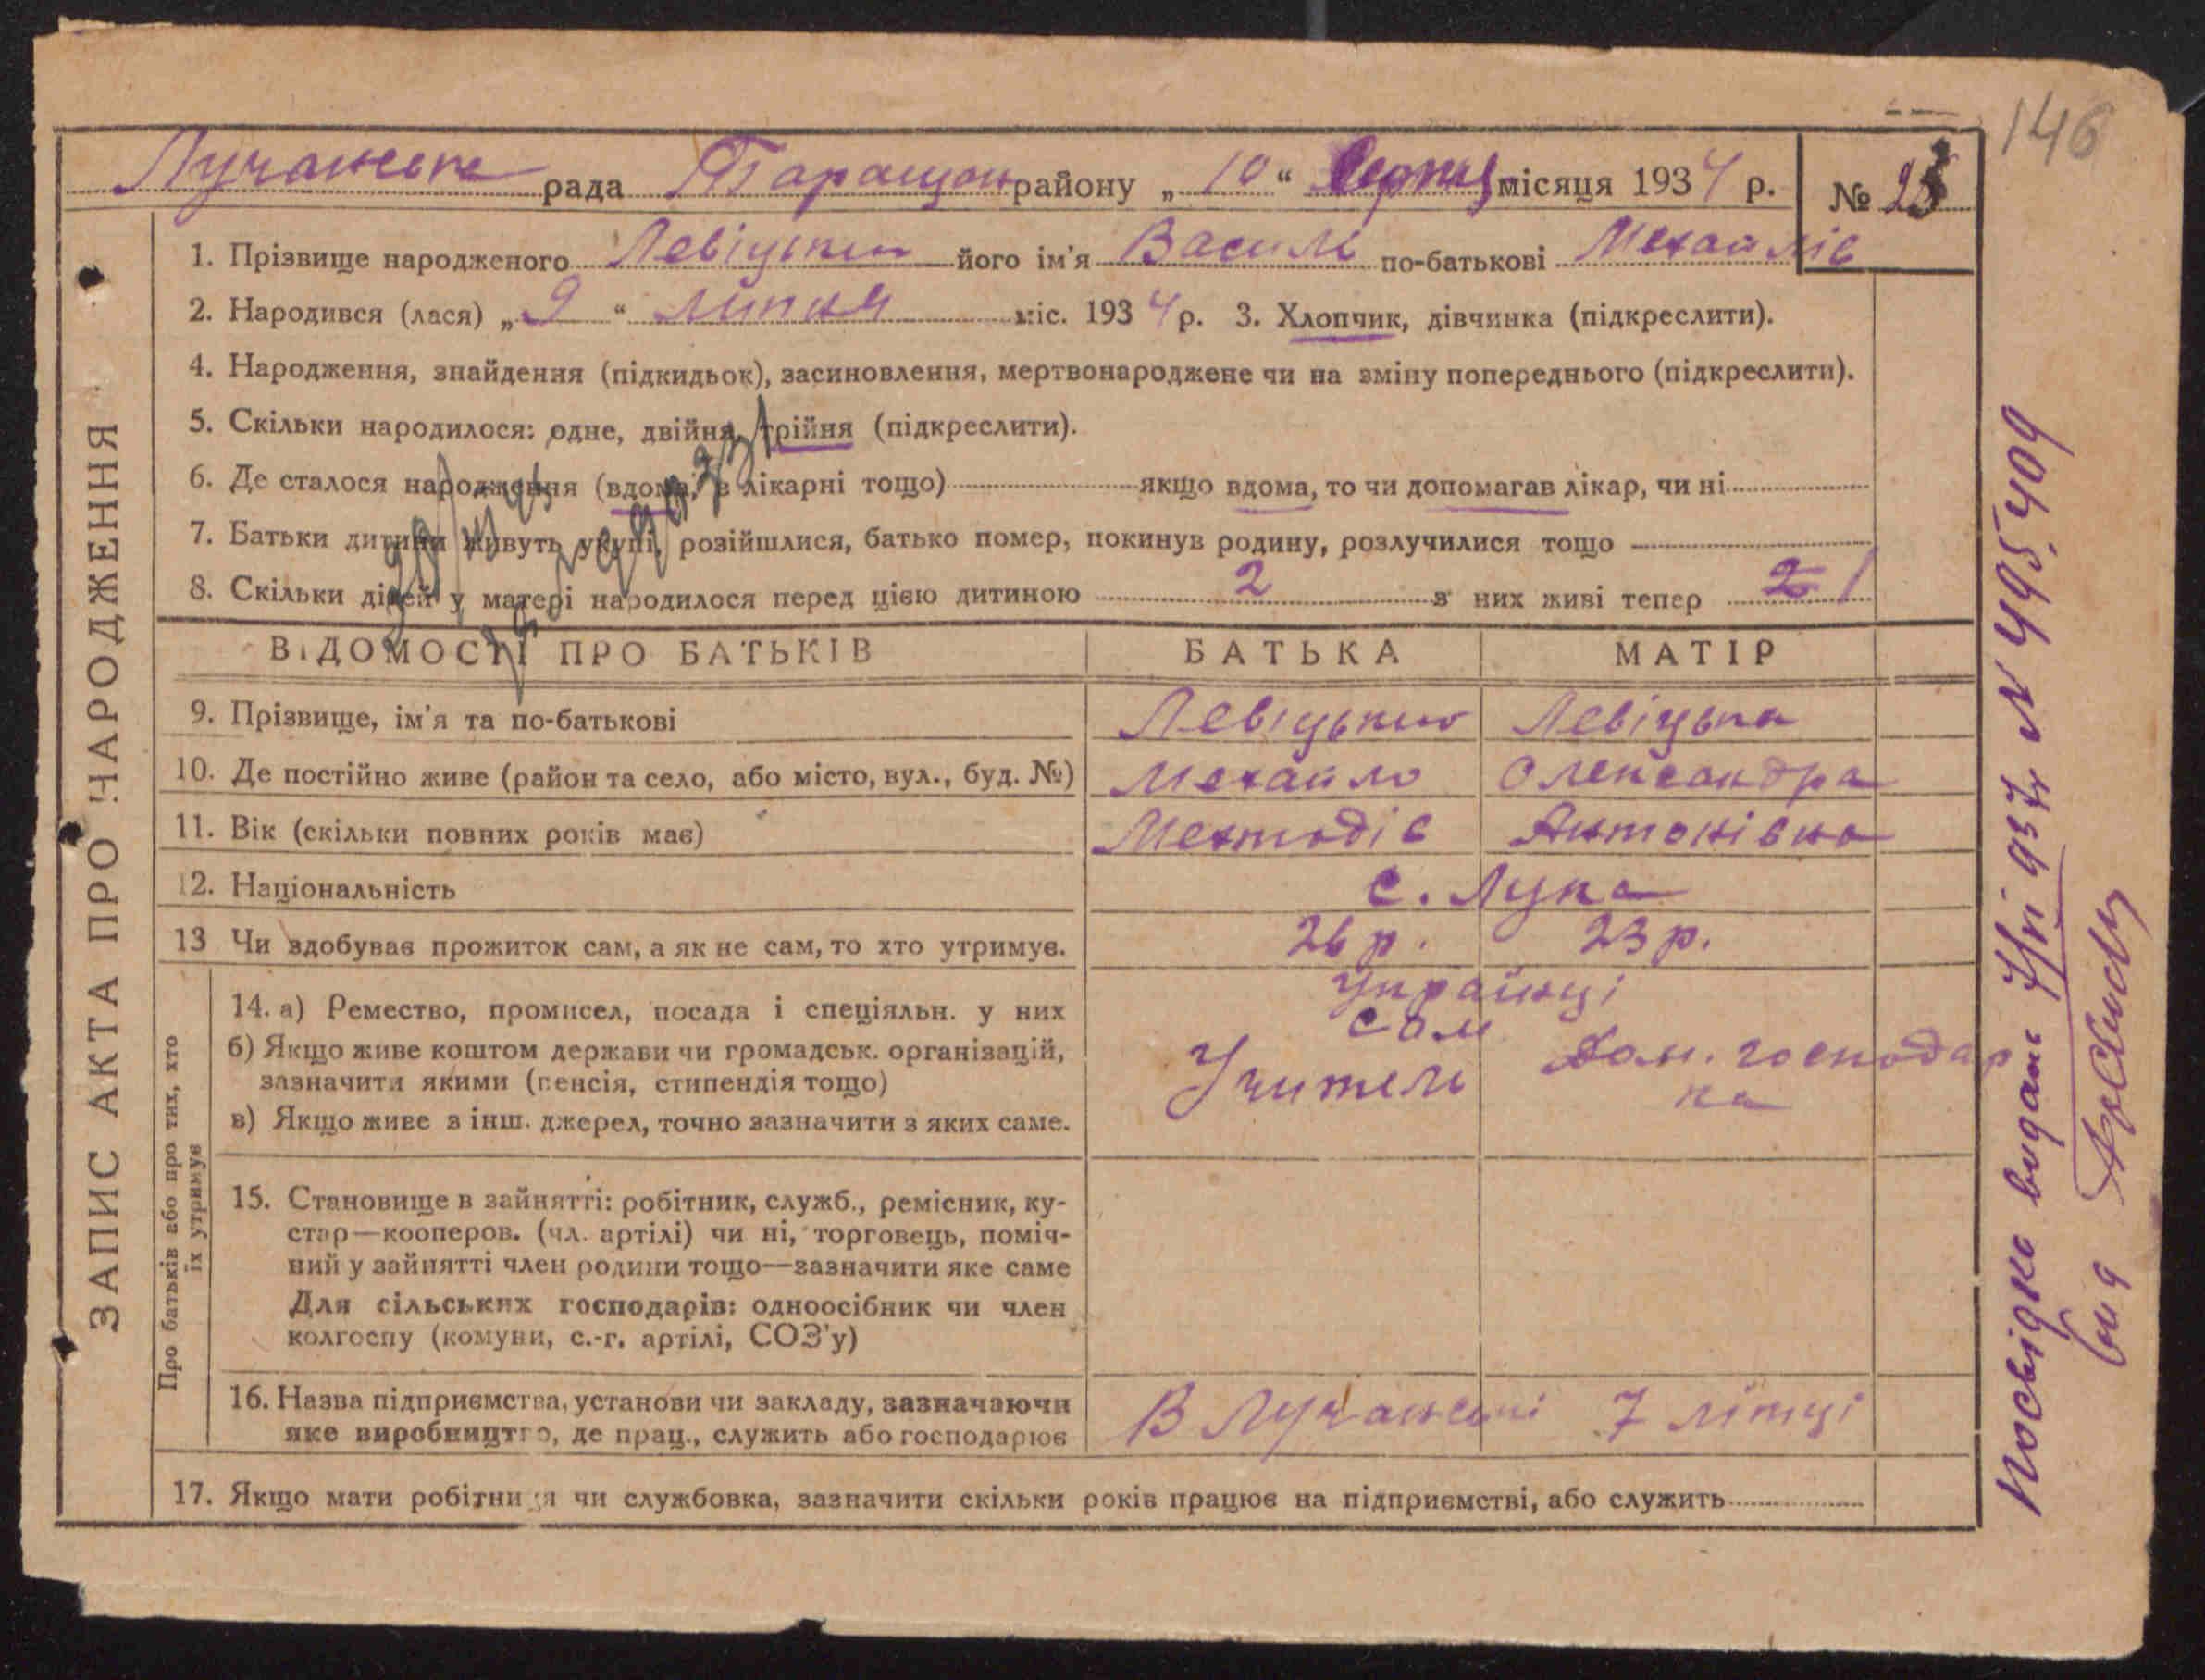 146
Лучанська рада Таращан району „10“ Серпня місяця 1934 р. №
1. Прізвище народженого Левіцький його ім'я Василь по-батькові Механлів
2. Народився (лася) „9“ липня міс. 1934 р. 3. Хлопчик, дівчинка (підкреслити).
4. Народження, знайдення (підкидьок), засиновлення, мертвонароджене чи на зміну попереднього (підкреслити).
5. Скільки народилося: одне, двійня, трійня (підкреслити).
6. Де сталося народження (вдома, в лікарні тощо) якщо вдома, то чи допомагав лікар, чи ні
7. Батьки дитини живуть укупі, розійшлися, батько помер, покинув родину, розлучилися тощо
8. Скільки дітей у матері народилося перед цією дитиною 2 з них живі тепер 2 1
ВІДОМОСТІ ПРО БАТЬКІВ БАТЬКА МАТІР
9. Прізвище, ім'я та по-батькові Левіцький Левіцька
10. Де постійно живе (район та село, або місто, вул., буд. №) Механло Олександра
11. Вік (скільки повних років має) Мехтодів Антонівна
12. Національність с. Лука
13 Чи здобуває прожиток сам, а як не сам, то хто утримує. 26 р. 23 р.
Українці
сам
Про батьків або про тих, хто їх утримує
14. а) Ремество, промисел, посада і спеціяльн. у них
б) Якщо живе коштом держави чи громадськ. організацій, Учитель Дом. господар
зазначити якими (пенсія, стипендія тощо) ка
в) Якщо живе з інш. джерел, точно зазначити з яких саме.
15. Становище в зайнятті: робітник, служб., ремісник, ку-
стар—кооперов. (чл. артілі) чи ні, торговець, поміч-
ний у зайнятті член родини тощо—зазначити яке саме
Для сільських господарів: одноосібник чи член
колгоспу (комуни, с.-г. артілі, СОЗ'у)
16. Назва підприємства, установи чи закладу, зазначаючи В Лучанські 7 літці
яке виробництво, де прац., служить або господарює
17. Якщо мати робітниця чи службовка, зазначити скільки років працює на підприємстві, або служить
ЗАПИС АКТА ПРО НАРОДЖЕННЯ
Посвідка видана 937 р N 495409